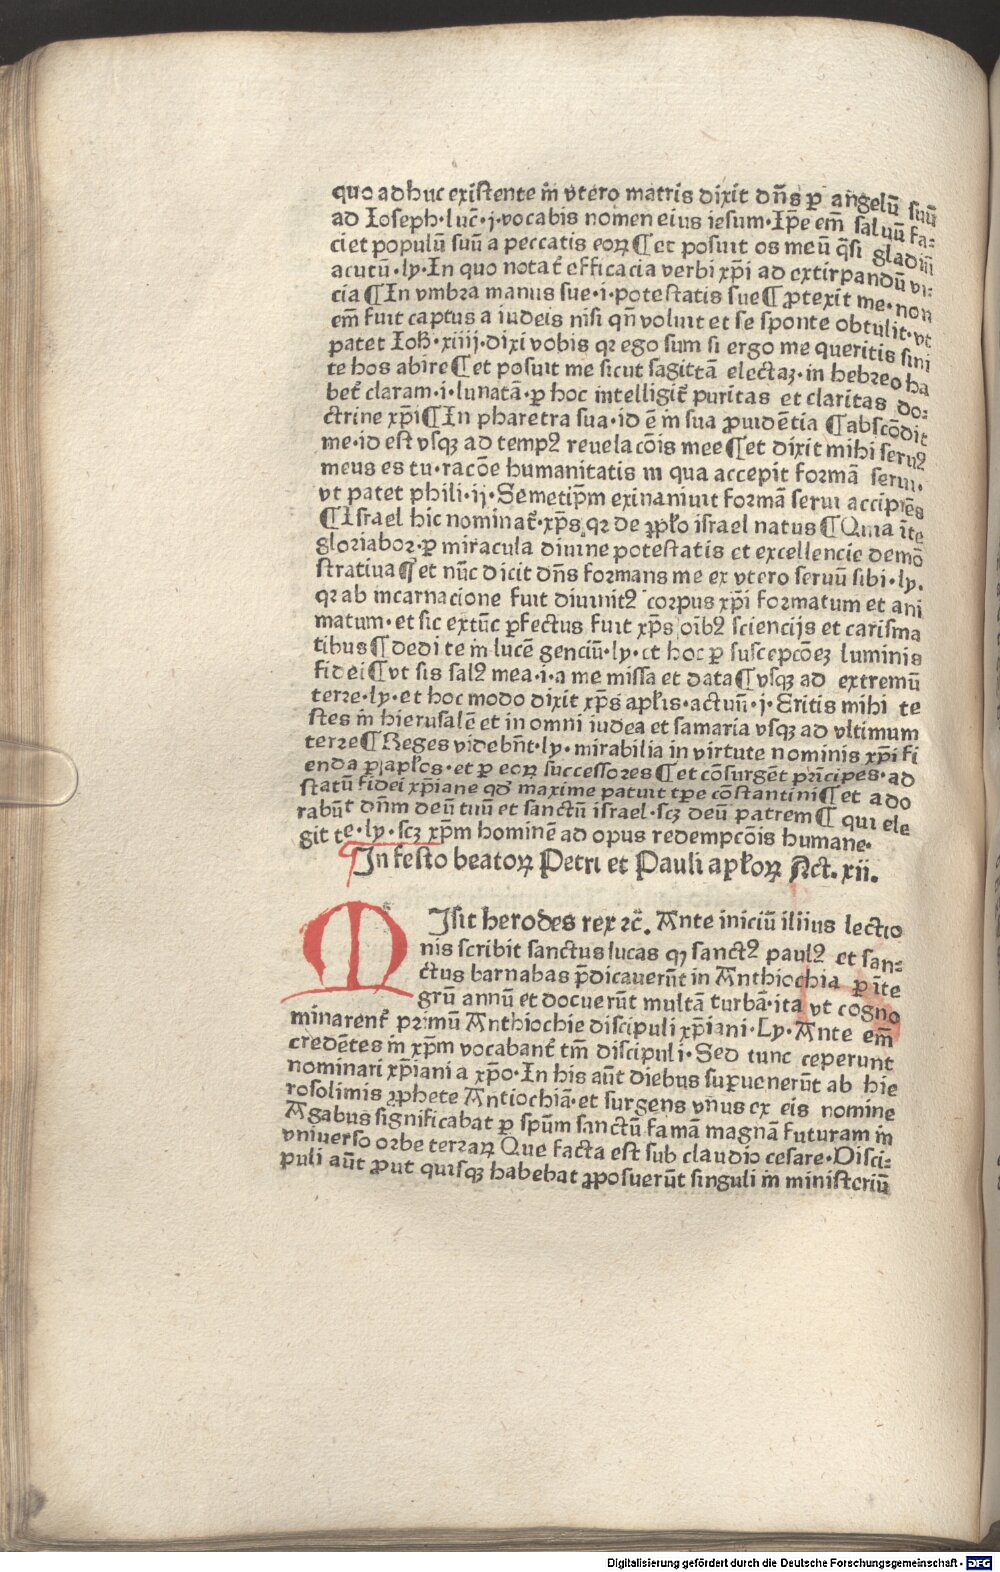 quo adhuc existente in vtero matris dixit dn̄s ꝑ angelū suū
ad Ioseph·luc̄·j·vocabis nomen eius iesum·Ip̄e em̄ saluū fa⸗
ciet populū suū a peccatis eoꝝ ¶ et posuit os meū q̄si gladiū
acutū·ly·In quo notat᷑ efficacia verbi xp̄i ad extirpandū vi⸗
cia ¶ In vmbra manus sue·i·potestatis sue ¶ ꝓtexit me·non
em̄ fuit captus a iudeis nisi qn̄ voluit et se sponte obtulit·vt
patet Ioh̄·xiiij·dixi vobis qꝛ ego sum si ergo me queritis sini
te hos abire ¶ et posuit me sicut sagittā electaꝫ·in hebreo ha
bet᷑ claram·i·lunatā·ꝑ hoc intelligit᷑ puritas et claritas do⸗
ctrine xp̄i ¶ In pharetra sua·id ē in sua ꝓuidētia ¶ abscōdit
me·id est vsqꝫ ad tempꝰ reuelacōis mee ¶ et dixit mihi seruꝰ
meus es tu·racōe humanitatis in qua accepit formā serui·
vt patet phili·ij·Semetip̄m exinaniuit formā serui accipiēs
¶ Israel hic nominat᷑·xp̄s qꝛ de ꝓpło israel natus ¶ Quia ī te
gloriabor·ꝑ miracula diuine potestatis et excellencie demō
stratiua ¶ et nūc dicit dn̄s formans me ex vtero seruū sibi·ly.
qꝛ ab incarnacione fuit diuinitꝰ corpus xp̄i formatum et ani
matum·et sic extūc ꝑfectus fuit xp̄s oībꝰ sciencijs et carisma
tibus ¶ dedi te in lucē genciū·ly·et hoc ꝑ suscepcōeꝫ luminis
fidei ¶ vt sis salꝰ mea·i·a me missa et data ¶ vsqꝫ ad extremū
terre·ly·et hoc modo dixit xp̄s apłis·actuū·j·Eritis mihi te
stes in hierusalē et in omni iudea et samaria vsqꝫ ad vltimum
terre ¶ Reges videbn̄t·ly·mirabilia in virtute nominis xp̄i fi
enda ꝑ apłos·et ꝑ eoꝝ successores ¶ et cōsurgēt prīncipes·ad
statū fidei xp̄iane qđ maxime patuit tp̄e cōstantini ¶ et ado
rabūt dn̄m deū tuū et sanctū israel·scꝫ deū patrem ¶ qui ele
git te·ly·scꝫ xp̄m hominē ad opus redempcōis humane·
In festo beatoꝝ Petri et Pauli apłoꝝ Act. xii.
MIsit herodes rex ⁊c̄. Ante iniciū illius lectio
nis scribit sanctus lucas qꝫ sanctꝰ paulꝰ et san⸗
ctus barnabas p̄dicauerūt in Anthiochia ꝑ īte
grū annū et docuerūt multā turbā·ita vt cogno
minarent᷑ primū Anthiochie discipuli xp̄iani·Ly·Ante em̄
credētes in xp̄m vocabant᷑ tm̄ discipuli·Sed tunc ceperunt
nominari xp̄iani a xp̄o·In his aūt diebus suꝑuenerūt ab hie
rosolimis ꝓphete Antiochiā·et surgens vnus ex eis nomine
Agabus significabat ꝑ spūm sanctū famā magnā futuram in
vniuerso orbe terraꝝ Que facta est sub claudio cesare·Disci⸗
puli aūt ꝓut quisqꝫ habebat ꝓposuerūt singuli in ministeriū
Digitalisierung gefördert durch die Deutsche Forschungsgemeinschaft · DFG